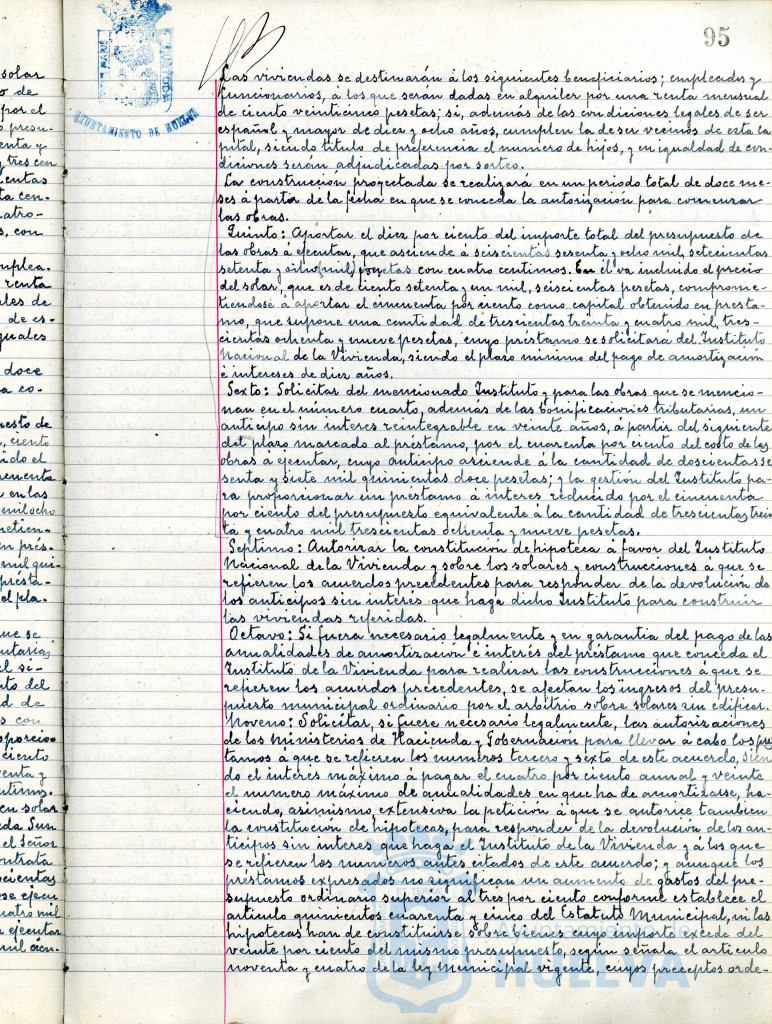 95
AYUNTAMIENTO DE HUELVA
Las viviendas se destinarán á los siguientes beneficiarios; empleados y
funcionarios, á los que serán dadas en alquiler por una renta mensual
de ciento veinticinco pesetas; si, además de las condiciones legales de ser
español y mayor de diez y ocho años, cumplen la de ser vecinos de esta Ca-
pital, siendo título de preferencia el número de hijos, y en igualdad de con-
diciones serán adjudicadas por sorteo.
La construcción proyectada se realizará en un periodo total de doce me-
ses á partir de la fecha en que se conceda la autorización para comenzar
las obras.
Quinto: Aportar el diez por ciento del importe total del presupuesto de
las obras á ejecutar, que asciende á seiscientas sesenta y ocho mil, setecientas
setenta y ocho (mil) pesetas con cuatro centimos. En él va incluido el precio
del solar, que es de ciento setenta y un mil, seiscientas pesetas, comprome-
tiendosé á aportar el cincuenta por ciento como capital obtenido en présta-
mo, que supone una cantidad de trescientas treinta y cuatro mil, tres-
cientas ochenta y nueve pesetas, cuyo préstamo se solicitará del Instituto
Nacional de la Vivienda, siendo el plazo minimo del pago de amortización
é intereses de diez años.
Sexto: Solicitar del mencionado Instituto y para las obras que se mencio-
nan en el número cuarto, ademas de las bonificaciones tributarias, un
anticipo sin interes reintegrable en veinte años, á partir del siguiente
del plazo marcado al préstamo, por el cuarenta por ciento del costo de las
obras á ejecutar, cuyo anticipo asciende á la cantidad de doscientas se
senta y siete mil quinientas doce pesetas; y la gestión del Instituto pa-
ra proporcionar un préstamo á interes reducido por el cincuenta
por ciento del presupuesto equivalente á la cantidad de trescientas trein
ta y cuatro mil trescientas ochenta y nueve pesetas.
Septimo: Autorizar la constitución de hipoteca á favor del Instituto
Nacional de la Vivienda y sobre los solares y construcciones á que se
refieren los acuerdos precedentes para responder de la devolución de
los anticipos sin interés que haga dicho Instituto para construir
las viviendas referidas.
Octavo: Si fuera necesario legalmente y en garantia del pago de las
anualidades de amortización é interés del préstamo que conceda el
Instituto de la Vivienda para realizar las construcciones á que se
refieren los acuerdos precedentes, se afectan los ingresos del presu-
puesto municipal ordinario por el arbitrio sobre solares sin edificar.
Noveno: Solicitar, si fuere necesario legalmente, las autorizaciones
de los Ministerios de Hacienda y Gobernación para llevar á cabo los prés
tamos á que se refieren los numeros tercero y sexto de este acuerdo, sien
do el interes máximo á pagar el cuatro por ciento anual y veinte
el numero máximo de anualidades en que ha de amortizarse, ha-
ciendo, asimismo, extensiva la petición á que se autorice tambien
la constitución de hipotecas, para responder de la devolución de los an-
ticipos sin interes que haga el Instituto de la Vivienda y á los que
se refieren los numeros antes citados de este acuerdo; y aunque los
préstamos expresados no significan un aumento de gastos del pre-
supuesto ordinario superior al tres por ciento conforme establece el
articulo quinientos cuarenta y cinco del Estatuto Municipal, ni las
hipotecas han de constituirse sobre bienes cuyo importe excede del
veinte por ciento del mismo presupuesto, según señala el articulo
noventa y cuatro de la ley Municipal vigente, cuyos preceptos orde-
HUELVA